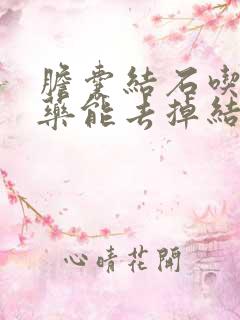 膽囊結石喫
藥能去掉結
心晴花開